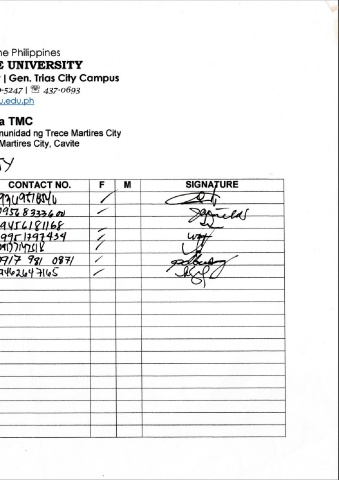 he Philippines
E UNIVERSITY
| Gen. Trias City Campus
-5247 | ☏ 437-0693
u.edu.ph
a TMC
munidad ng Trece Martires City
Martires City, Cavite
TY
CONTACT NO. F M SIGNATURE
09568333600 ✓
09456181168
09951797434 ✓
0917 981 0871 ✓
09462647165 ✓